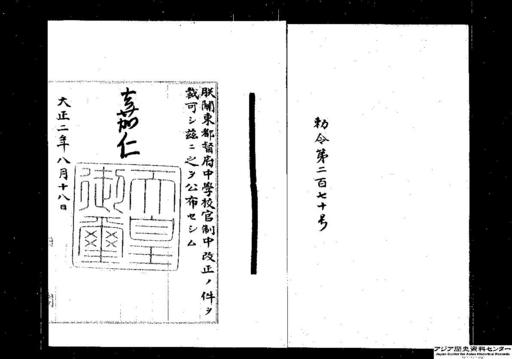 勅令第二百七十号
朕関東都督府中學校官制中改正ノ件ヲ
裁可シ茲ニ之ヲ公布セシム
嘉仁
天皇御璽
大正二年八月十八日
アジア歴史資料センター
Japan Center for Asian Historical Records